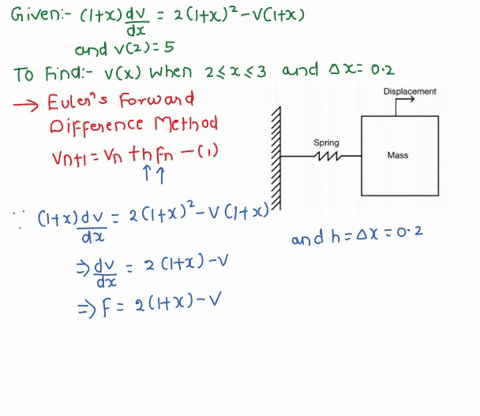 Given:- (1+x) dv/dx = 2(1+x)² - v(1+x)
and v(2)=5
To Find:- v(x) when 2≤x≤3 and Δx=0.2
→ Euler's Forward
Difference Method
Vn+1 = Vn + h Fn - (1)
↑↑
Displacement
Spring
Mass
∵ (1+x) dv/dx = 2(1+x)² - v(1+x)
and h=Δx=0.2
⇒ dv/dx = 2(1+x)-v
⇒ F = 2(1+x)-v